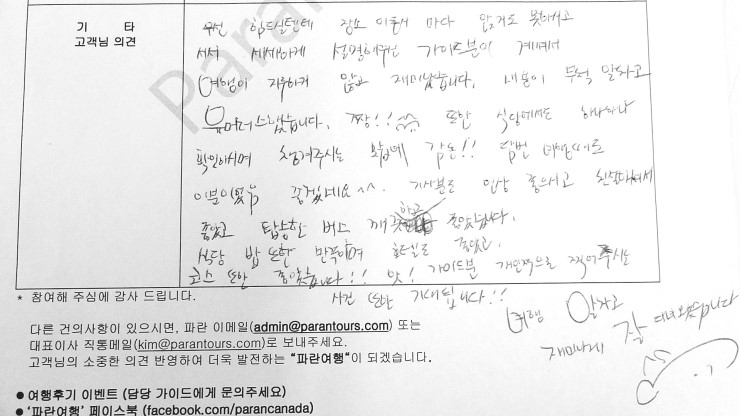 기 타
고객님 의견
우선 힘드실텐데 장소 이동시 마다 앉지도 못하시고
서서 세세하게 설명해주신 가이드분이 계셔서
여행이 지루하지 않고 재미있었습니다. 내용이 무척 알차고
유머러스했습니다. 짱!! 또한 식당에서도 하나하나
확인하시며 챙겨주시는 모습에 감동!! 담번 여행때도
이분이었음 좋겠네요^^. 기사분도 인상 좋으시고 친절하셔서
좋았고 탑승한 버스 깨끗하고 좋았습니다.
식당 밥 또한 만족이며 호텔도 좋았고.
코스 또한 좋았습니다!! 앗! 가이드분 개인적으로 찍어주시는
사진 또한 기대됩니다!!
여행 알차고
재미나게 잘 다녀왔습니다
* 참여해 주심에 감사 드립니다.
다른 건의사항이 있으시면, 파란 이메일(admin@parantours.com) 또는
대표이사 직통메일(kim@parantours.com)로 보내주세요.
고객님의 소중한 의견 반영하여 더욱 발전하는 "파란여행"이 되겠습니다.
● 여행후기 이벤트 (담당 가이드에게 문의주세요)
● '파란여행' 페이스북 (facebook.com/parancanada)